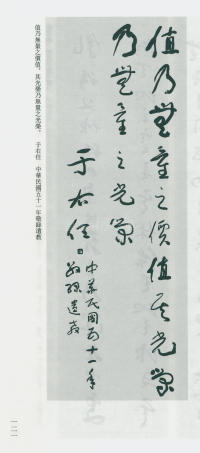 值乃無量之價值其光榮
乃無量之光榮
于右任
中華民國五十一年
敬錄遺教
值乃無量之價值，其光榮乃無量之光榮。 于右任 中華民國五十一年敬錄遺教